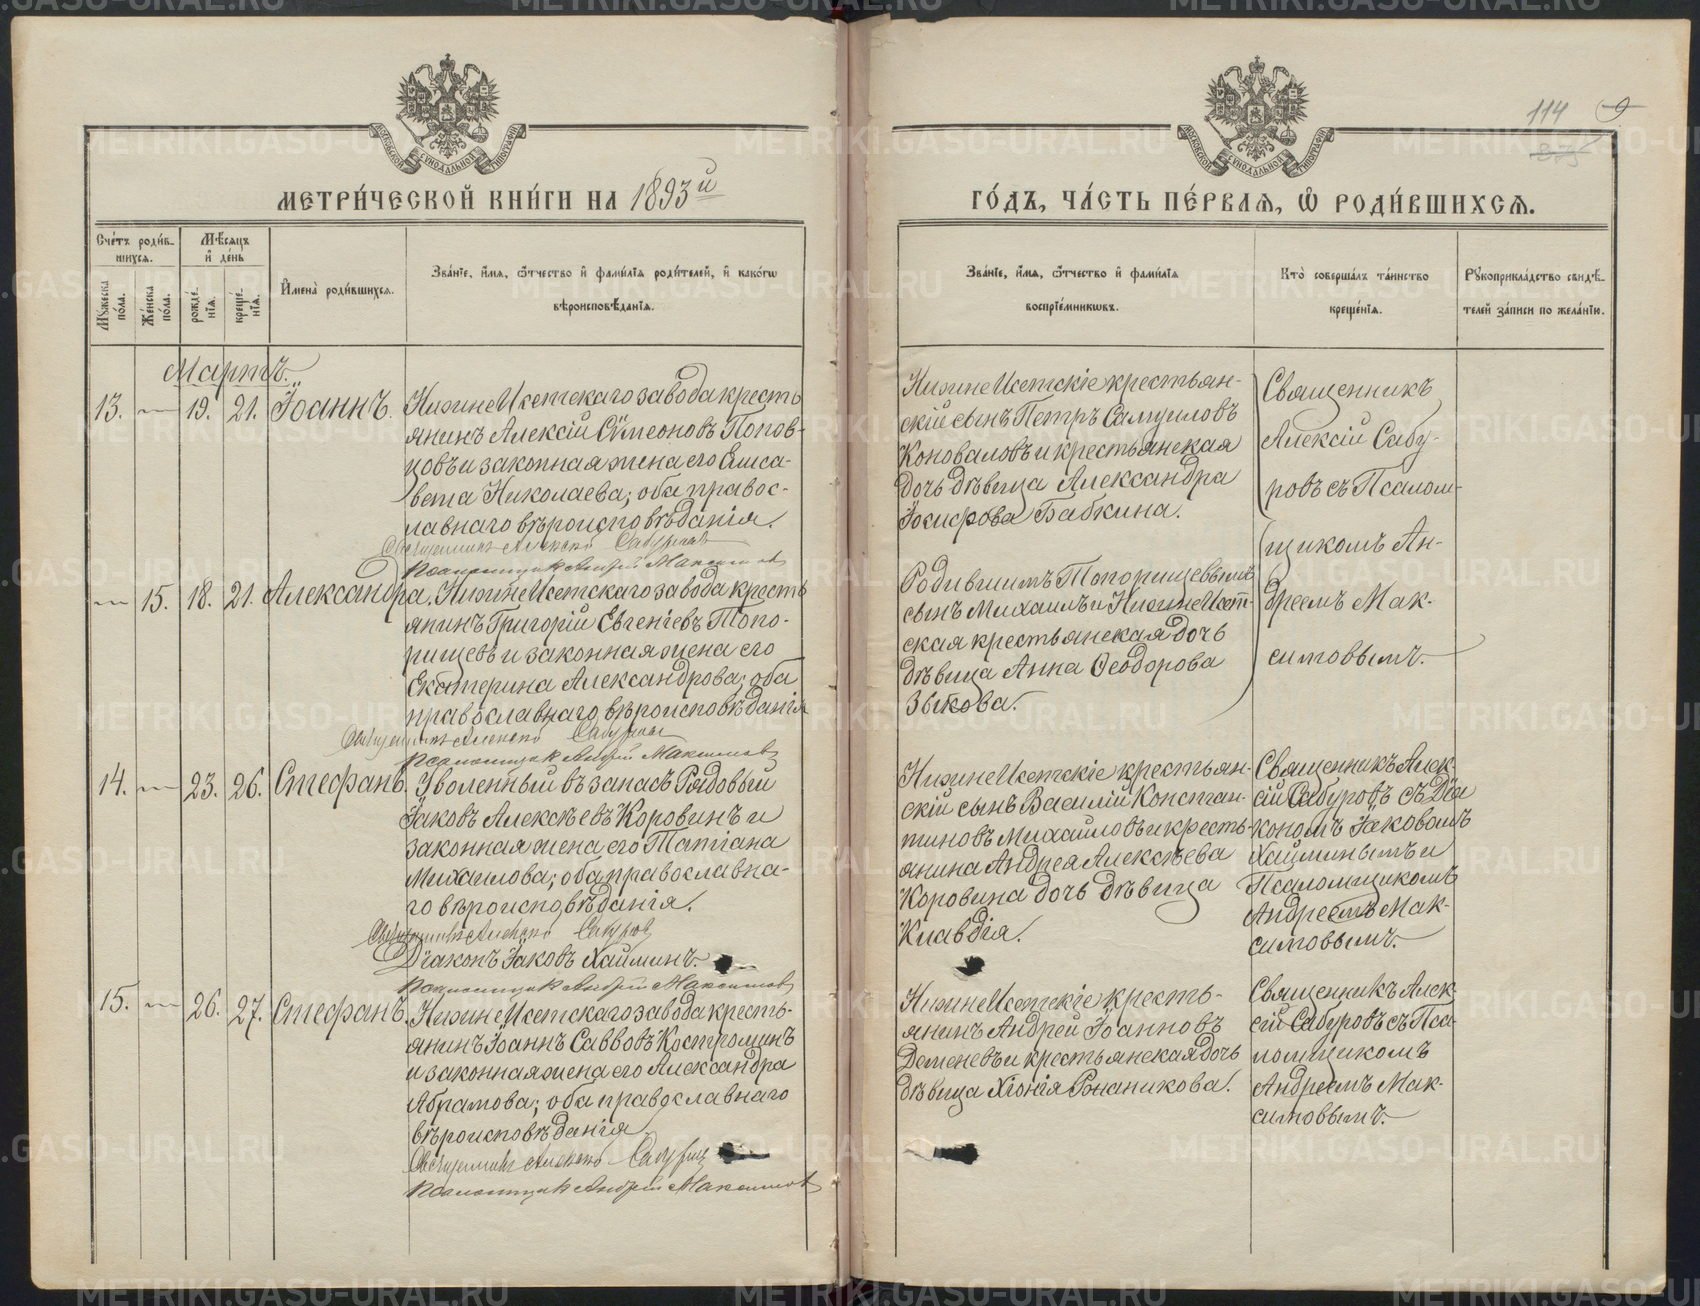 114 9
375
МОСКОВСКОЙ СѴНОДАЛЬНОЙ ТИПОГРАФІИ
МОСКОВСКОЙ СѴНОДАЛЬНОЙ ТИПОГРАФІИ
МЕТРИ́ЧЕСКОЙ КНИ́ГИ НА 1893й
ГО́ДЪ, ЧА́СТЬ ПЕ́РВАѦ, Ѡ҆ РОДИ́ВШИХСѦ.
Сче́тъ роди́в-
шихся.
Мѣ́сяцъ
и҆ де́нь
Мꙋ́жеска
по́ла.
Же́нска
по́ла.
рожде́-
нїѧ.
креще́-
нїѧ.
И҆мена̀ роди́вшихсѧ.
Зва́нїе, и҆́мѧ, ѻ҆́тчество и҆ фами́лїѧ роди́телей, и҆ како́гѡ
вѣроисповѣ́данїѧ.
Зва́нїе, и҆́мѧ, ѻ҆́тчество и҆ фами́лїѧ
воспрїе́мникѡвъ.
Кто̀ соверша́лъ та́инство
креще́нїѧ.
Рꙋкоприкла́дство свидѣ́-
телей за́писи по жела́нїю.
Мартъ.
13. — 19. 21. Іоаннъ.
Нижне Исетскаго завода кресть
янинъ Алексій Сѵмеоновъ Попов-
цовъ и законная жена его Елиса-
вета Николаева; оба правос-
лавнаго вѣроисповѣданія.
Священникъ Алексій Сабуровъ
Псаломщикъ Андрей Максимовъ
Нижне Исетскіе крестьян-
скій сынъ Петръ Самуиловъ
Коноваловъ и крестьянская
дочь дѣвица Александра
Іосифова Бабкина.
Священникъ
Алексій Сабу-
ровъ съ Псалом-
щикомъ Ан-
дреемъ Мак-
симовымъ.
— 15. 18. 21. Александра.
Нижне Исетскаго завода кресть
янинъ Григорій Евгеніевъ Топо-
рищевъ и законная жена его
Екатерина Александрова; оба
православнаго вѣроисповѣданія
Священникъ Алексій Сабуровъ
Псаломщикъ Андрей Максимовъ
Родившимъ Топорищевымъ
сынъ Михаилъ и Нижне Исет-
ская крестьянская дочь
дѣвица Анна Ѳеодорова
Зыкова.
14. — 23. 26. Стефанъ.
Уволенный въ запасъ Рядовый
Іаковъ Алексѣевъ Коровинъ и
законная жена его Татіана
Михаилова; оба православна-
го вѣроисповѣданія.
Священникъ Алексій Сабуровъ
Діаконъ Іаковъ Хайминъ.
Псаломщикъ Андрей Максимовъ
Нижне Исетскіе крестьян-
скій сынъ Василій Констан-
тиновъ Михайловъ и кресть-
янина Андрея Алексѣева
Коровина дочь дѣвица
Клавдія.
Священникъ Алек-
сій Сабуровъ съ Діа
кономъ Іаковомъ
Хайминымъ и
Псаломщикомъ
Андреемъ Мак-
симовымъ.
15. — 26. 27. Стефанъ.
Нижне Исетскаго завода кресть-
янинъ Іоаннъ Саввовъ Костроминъ
и законная жена его Александра
Абрамова; оба православнаго
вѣроисповѣданія.
Священникъ Алексій Сабуровъ
Псаломщикъ Андрей Максимовъ
Нижне Исетскіе кресть-
янинъ Андрей Іоанновъ
Деменевъ и крестьянская дочь
дѣвица Хіонія Романикова.
Священникъ Алек-
сій Сабуровъ съ Пса-
ломщикомъ
Андреемъ Мак-
симовымъ.
METRIKI.GASO-URAL.RU